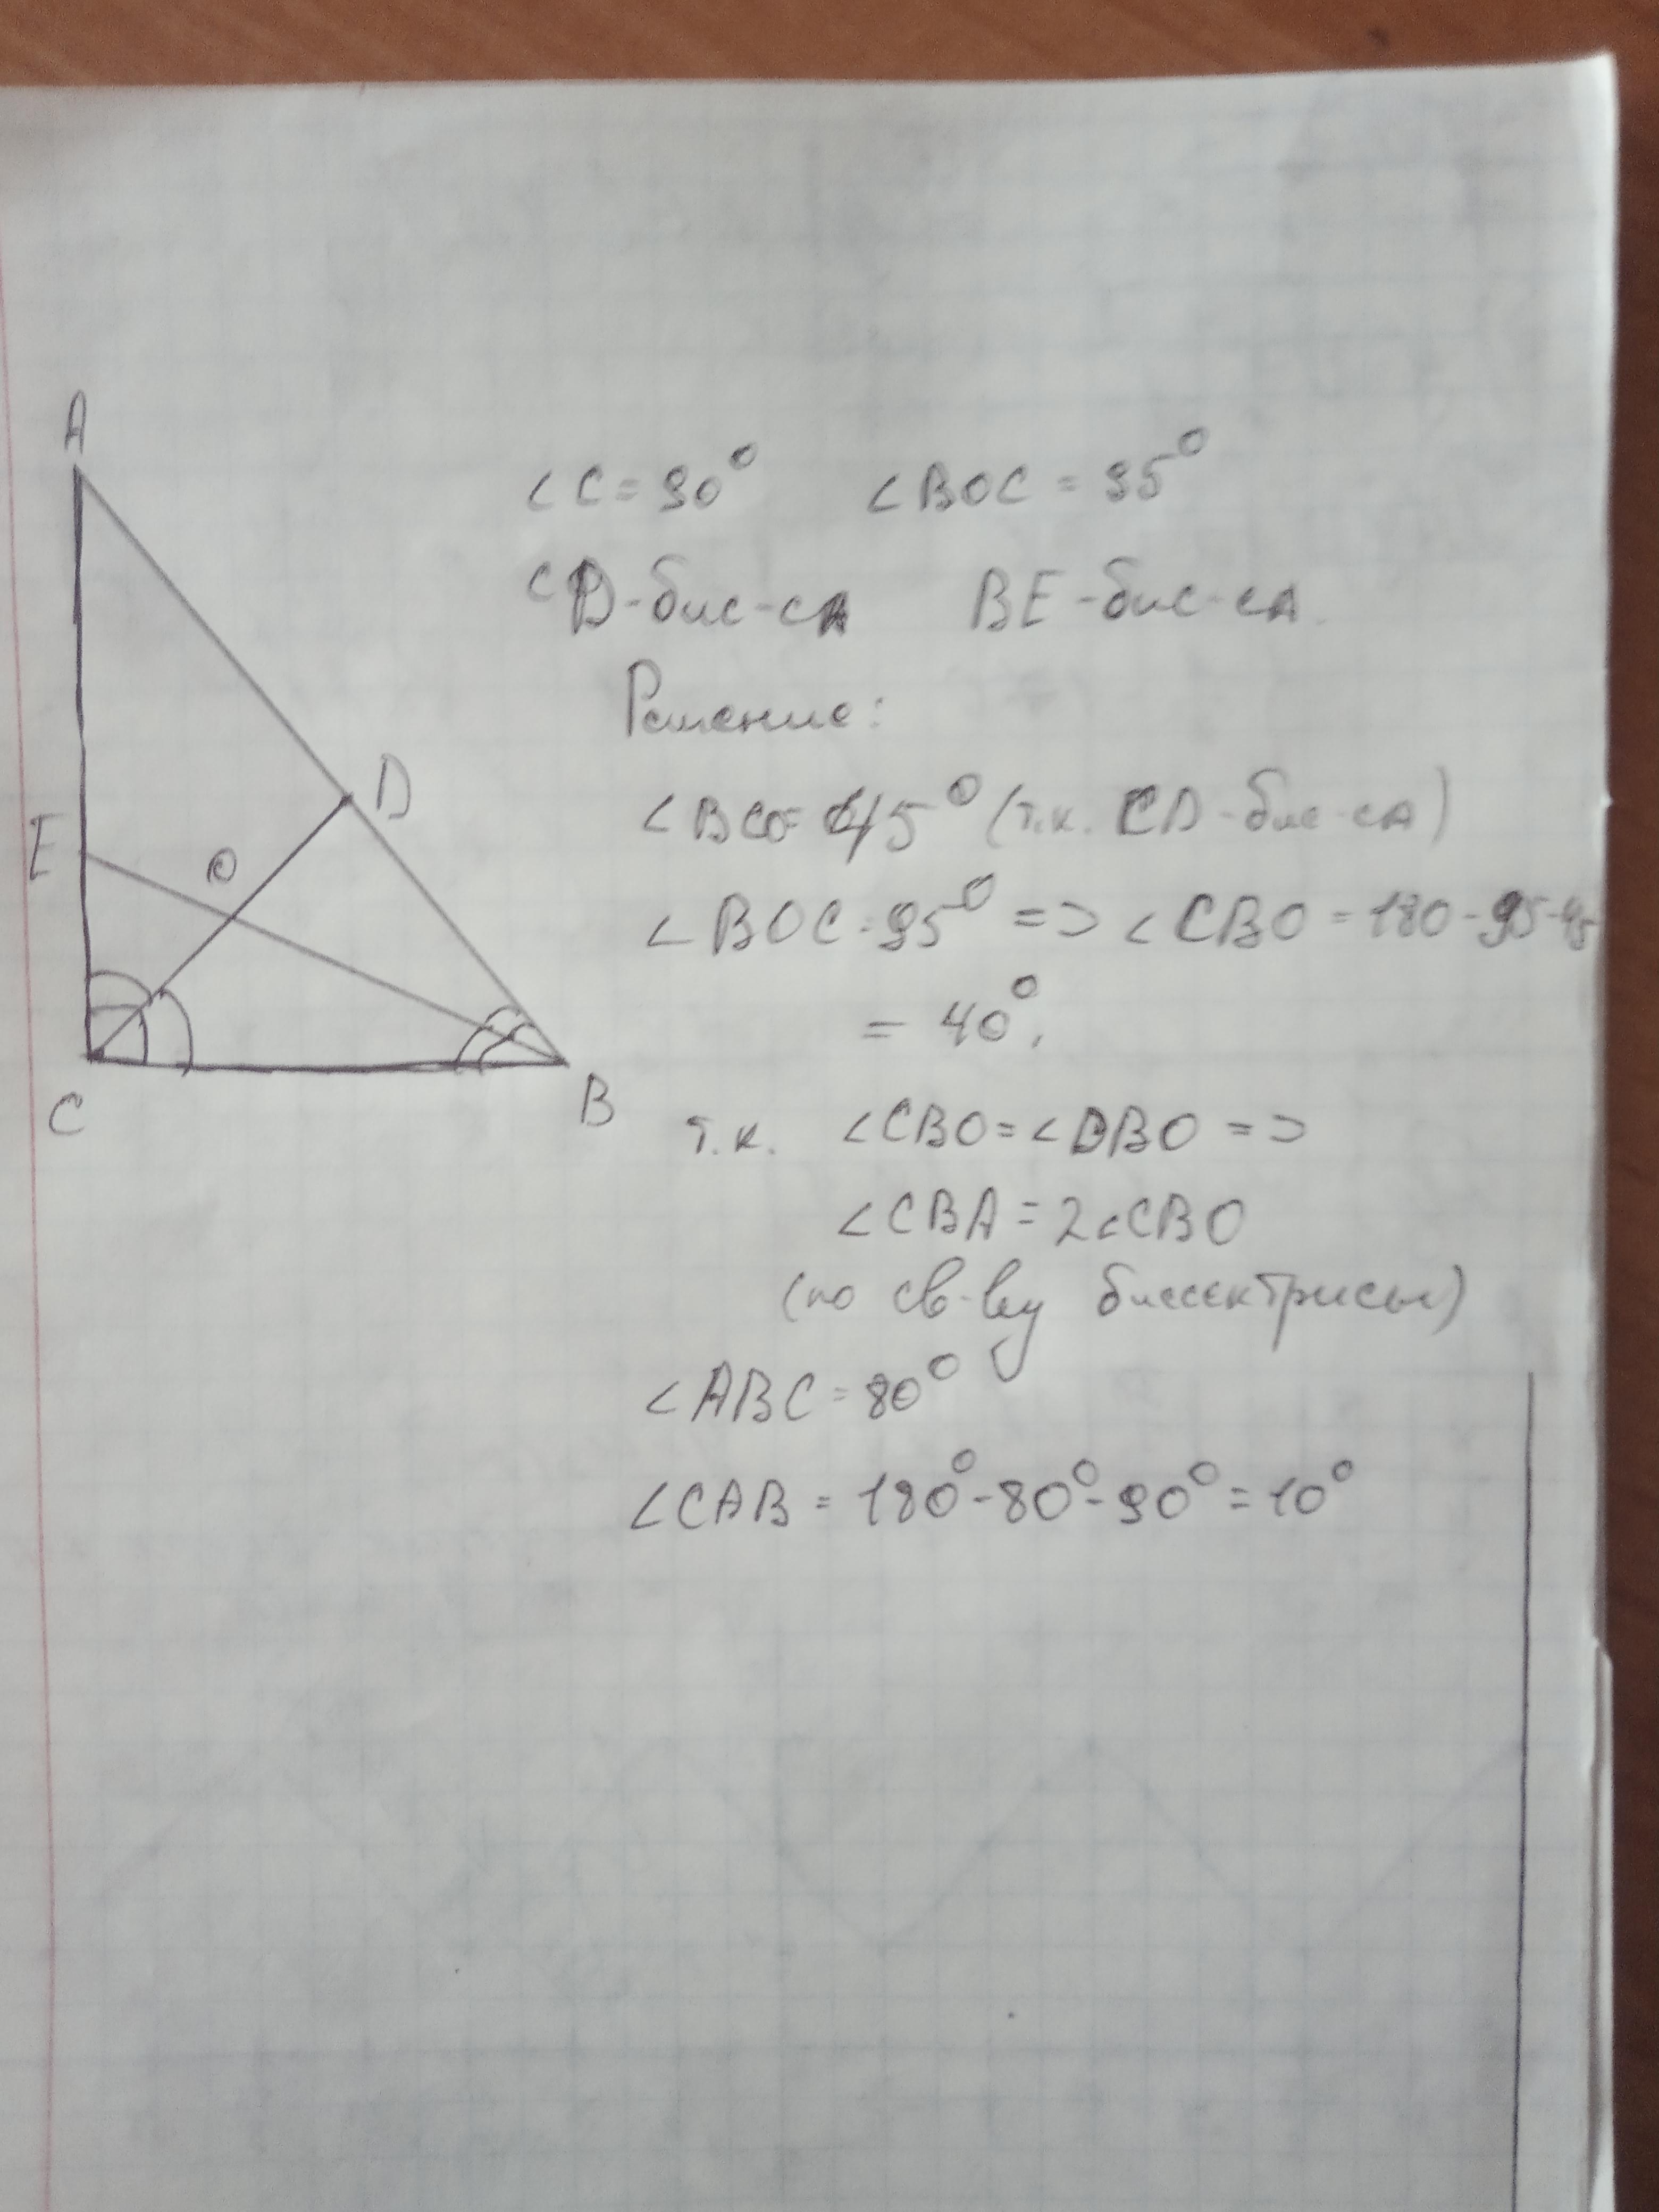 A
∠C = 90° ∠BOC = 95°
CD-бис-са BE-бис-са.
Решение:
D
∠BCO = 45° (т.к. CD-бис-са)
E
O
∠BOC = 95° => ∠CBO = 180-95-45
= 40°.
C
B
т.к. ∠CBO = ∠DBO =>
∠CBA = 2∠CBO
(по св-ву биссектрисы)
∠ABC = 80°
∠CAB = 180°-80°-90° = 10°